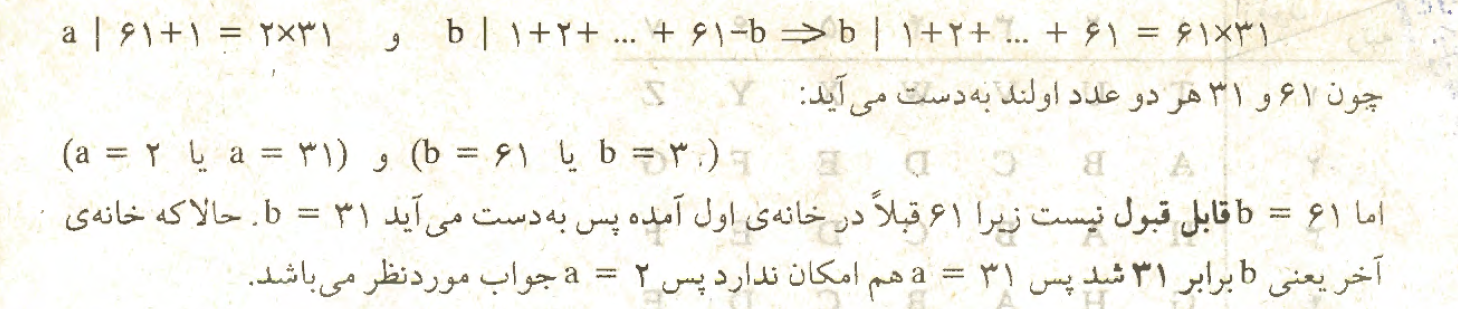 a | ۶۱+۱ = ۲×۳۱ و b | ۱+۲+ ... + ۶۱-b ⇒ b | ۱+۲+ ... + ۶۱ = ۶۱×۳۱
چون ۶۱ و ۳۱ هر دو عدد اولند به‌دست می‌آید:
(a = ۲ یا a = ۳۱) و (b = ۶۱ یا b = ۳.)
اما b = ۶۱ قابل قبول نیست زیرا ۶۱ قبلاً در خانه‌ی اول آمده پس به‌دست می‌آید b = ۳۱. حالا که خانه‌ی
آخر یعنی b برابر ۳۱ شد پس a = ۳۱ هم امکان ندارد پس a = ۲ جواب موردنظر می‌باشد.